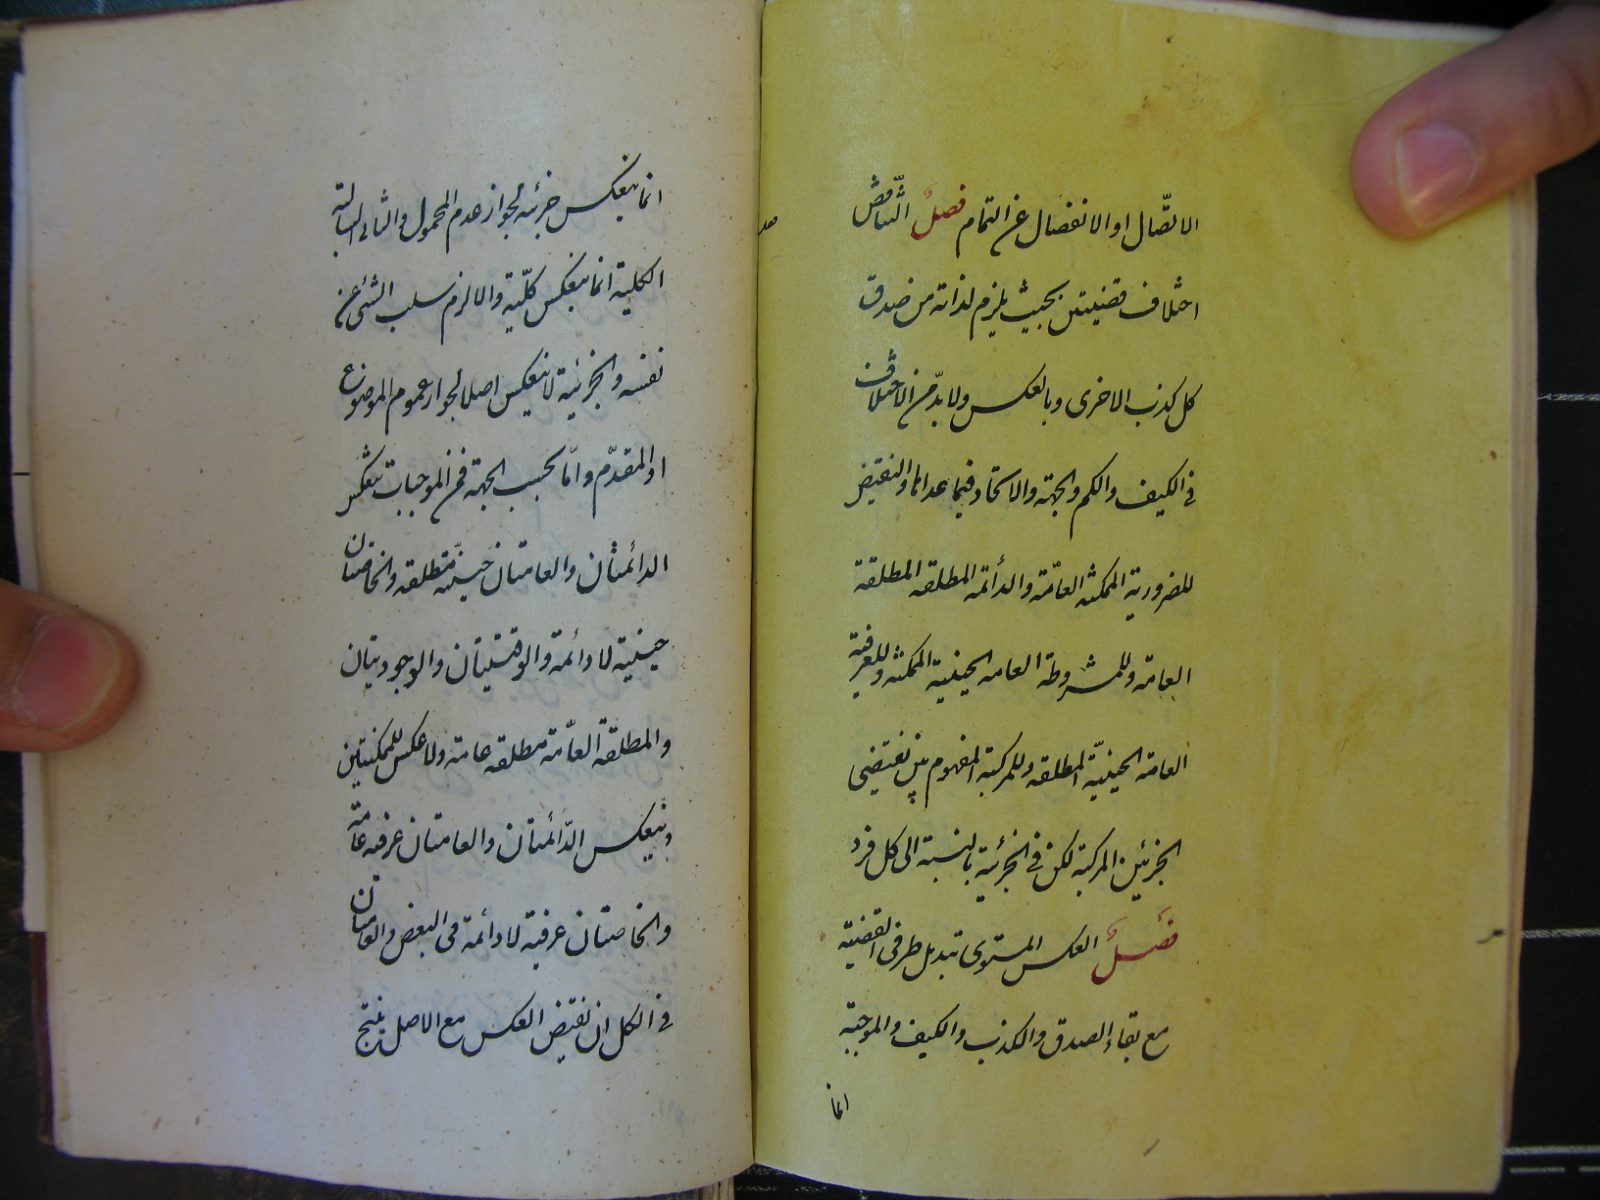 الاتّصال او الانفصال عن التمام فصل التّناقض
اختلاف قضيتين بحيث يلزم لذاته من صدق
كل كذب الاخرى وبالعكس ولا بدّ من الاختلاف
فى الكيف والكم والجهة والاتحاد فيما عداها والنقيض
للضرورية الممكنة العامّة والدائمة المطلقه المطلقة
العامة وللمشروطة العامه الحينية الممكنه وللعرفية
العامة الحينيّة المطلقه وللمركبة المفهوم بين نقيضى
الجزئين المركبة لكن فى الجزئية بالنسبة الى كل فرد
فصل العكس المستوى تبديل طرفى القضية
مع بقاء الصدق والكذب والكيف والموجبة
انما
انما ينعكس جزئيه لجواز عدم المحمول والتالى السالبة
الكلية انما ينعكس كلّية والا لزم سلب الشئ عن
نفسه والجزئية لا ينعكس اصلا لجواز عموم الموضوع
او المقدّم وامّا بحسب الجهة فمن الموجبات تنعكس
الدائمتان والعامتان حينيّه مطلقه والخاصتان
حينية لا دائمة والوقتيتان والوجوديتان
والمطلقة العامّة مطلقه عامة ولا عكس للممكنتين
وينعكس الدّائمتان والعامتان عرفيه عامة
والخاصتان عرفية لا دائمة فى البعض والعامتان
فى الكل ان نقيض العكس مع الاصل ينتج